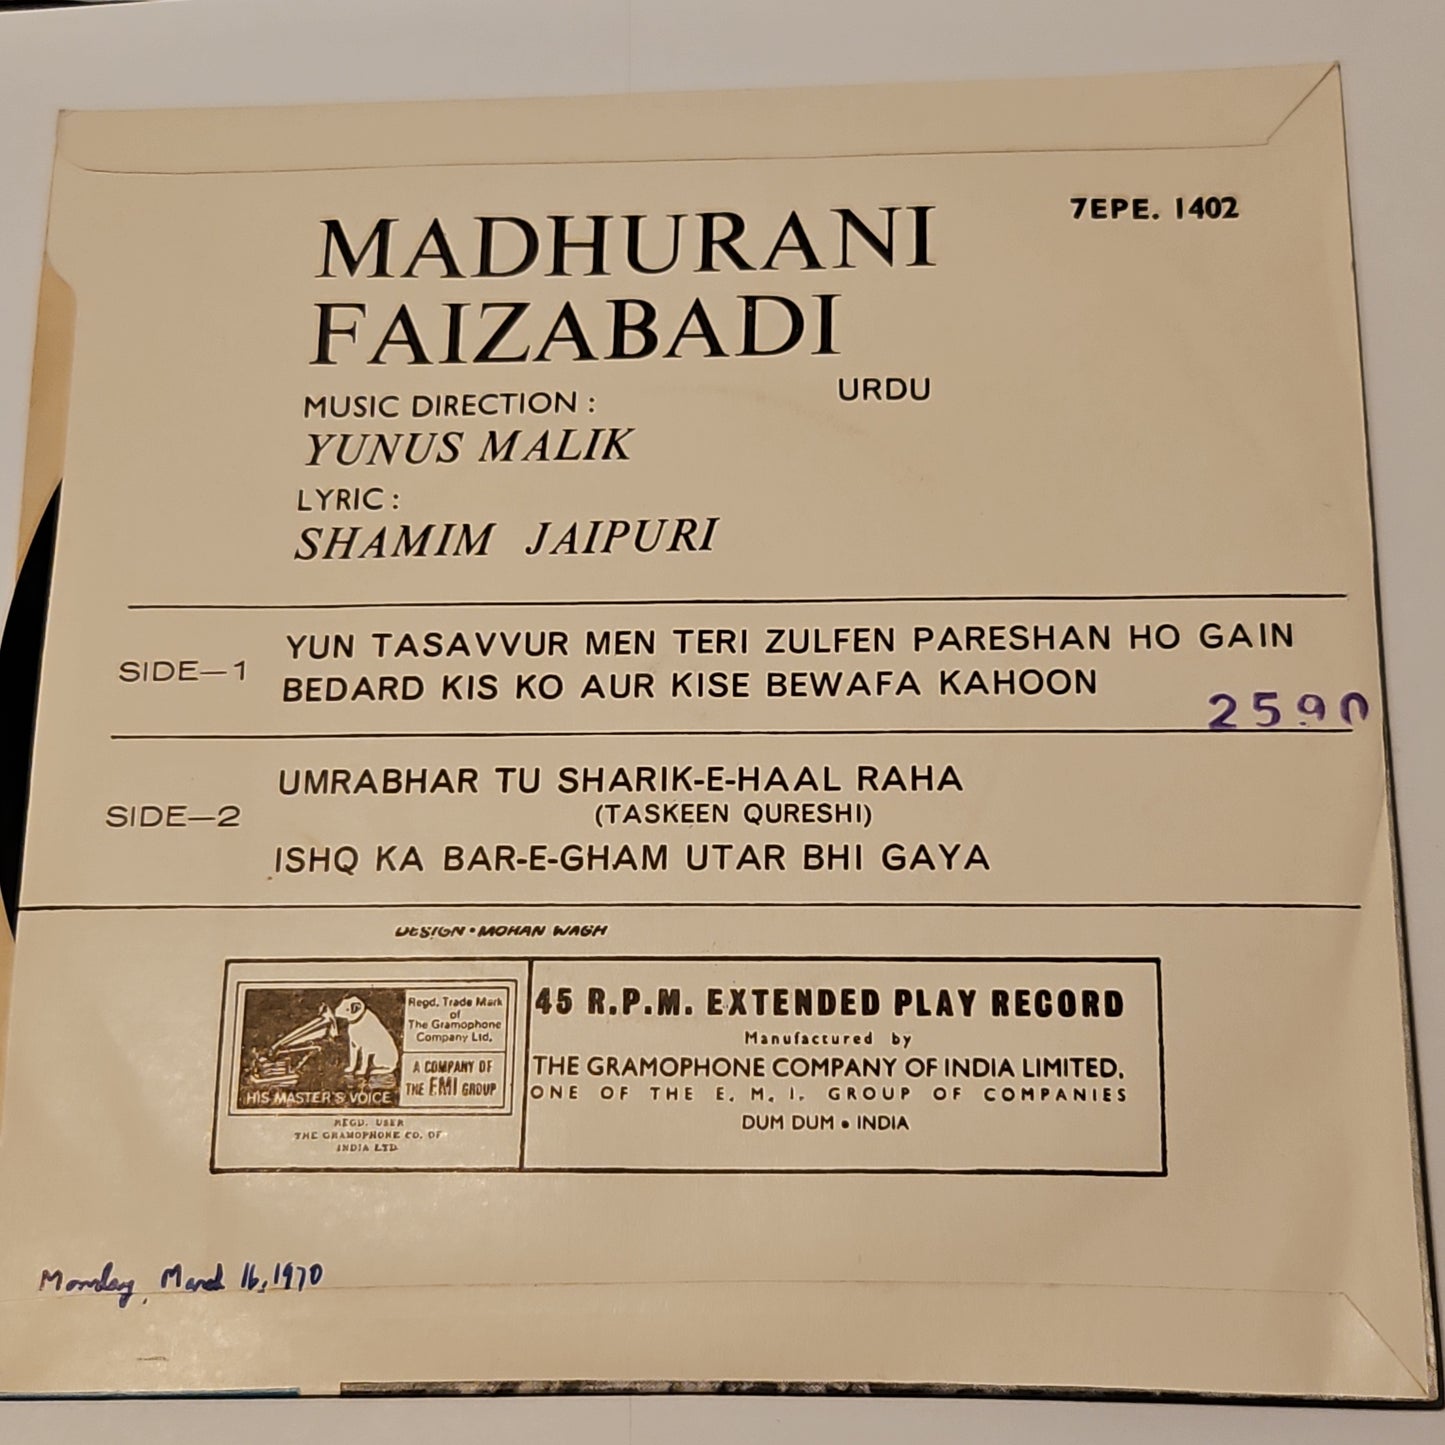 7EPE. 1402
MADHURANI
FAIZABADI
URDU
MUSIC DIRECTION :
YUNUS MALIK
LYRIC :
SHAMIM JAIPURI
SIDE—1
YUN TASAVVUR MEN TERI ZULFEN PARESHAN HO GAIN
BEDARD KIS KO AUR KISE BEWAFA KAHOON
2590
SIDE—2
UMRABHAR TU SHARIK-E-HAAL RAHA
(TASKEEN QURESHI)
ISHQ KA BAR-E-GHAM UTAR BHI GAYA
DESIGN • MOHAN WAGH
Regd. Trade Mark
of
The Gramophone
Company Ltd.
A COMPANY OF
THE EMI GROUP
HIS MASTER'S VOICE
REGD. USER
THE GRAMOPHONE CO. OF
INDIA LTD.
45 R.P.M. EXTENDED PLAY RECORD
Manufactured by
THE GRAMOPHONE COMPANY OF INDIA LIMITED.
ONE OF THE E. M. I. GROUP OF COMPANIES
DUM DUM • INDIA
Monday, March 16, 1970